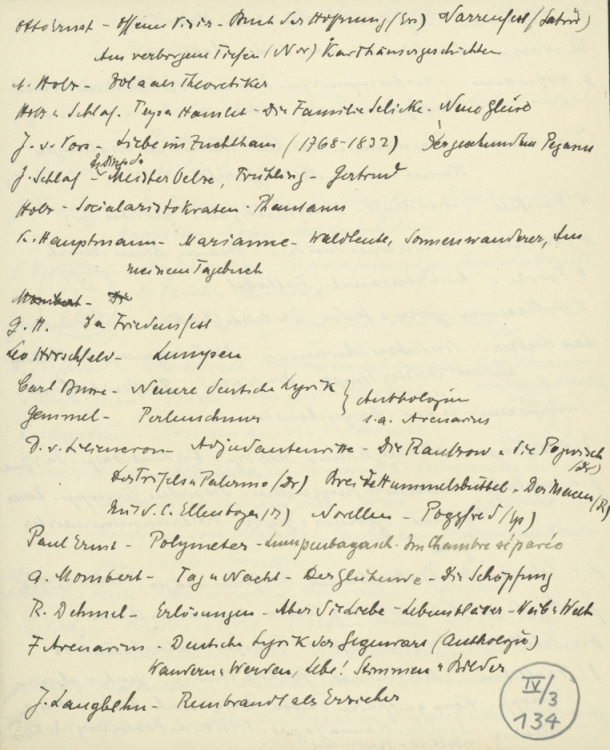 Otto Ernst - Offenes Visier - Buch der Hoffnung (Ess) Narrenfest (Satiren)
Aus verborgnen Tiefen (Nov) Karthäusergeschichten
A. Holz - Zola als Theoretiker
Holz u Schlaf. Papa Hamlet - Die Familie Selicke - Neue Gleise
J. v. Voss - Liebe im Zuchthaus (1768-1832) Der geschundene Pegasus
J. Schlaf - In Dingsda Meister Oelze, Frühling - Gertrud
Holz - Socialaristokraten - Phantasus
K. Hauptmann - Marianne - Waldleute, Sonnenwanderer, Aus
meinem Tagebuch
Mombert - Die
G. H. Das Friedensfest
Leo Hirschfeld - Lumpen
Carl Busse - Neuere deutsche Lyrik } Anthologien
Gemmel - Perlenschnur s. a. Avenarius
D. v. Liliencron - Adjudantenritte - Die Rantzow u die Pogwisch
(Dr)
Der Trifels u Palermo (Dr) Breide Hummelsbüttel - Der Mäcen (R)
Mit d. l. Ellenbogen (R) Novellen - Poggfred (Ep)
Paul Ernst - Polymeter - Lumpenbagasch. Im Chambre séparée
A. Mombert - Tag u Nacht - Der Glühende - Die Schöpfung
R. Dehmel - Erlösungen - Aber die Liebe - Lebensblätter - Weib u Welt
F. Avenarius - Deutsche Lyrik der Gegenwart (Anthologie)
Wandern u Werden, Lebe! Stimmen u Bilder
J. Langbehn - Rembrandt als Erzieher
IV/3
134